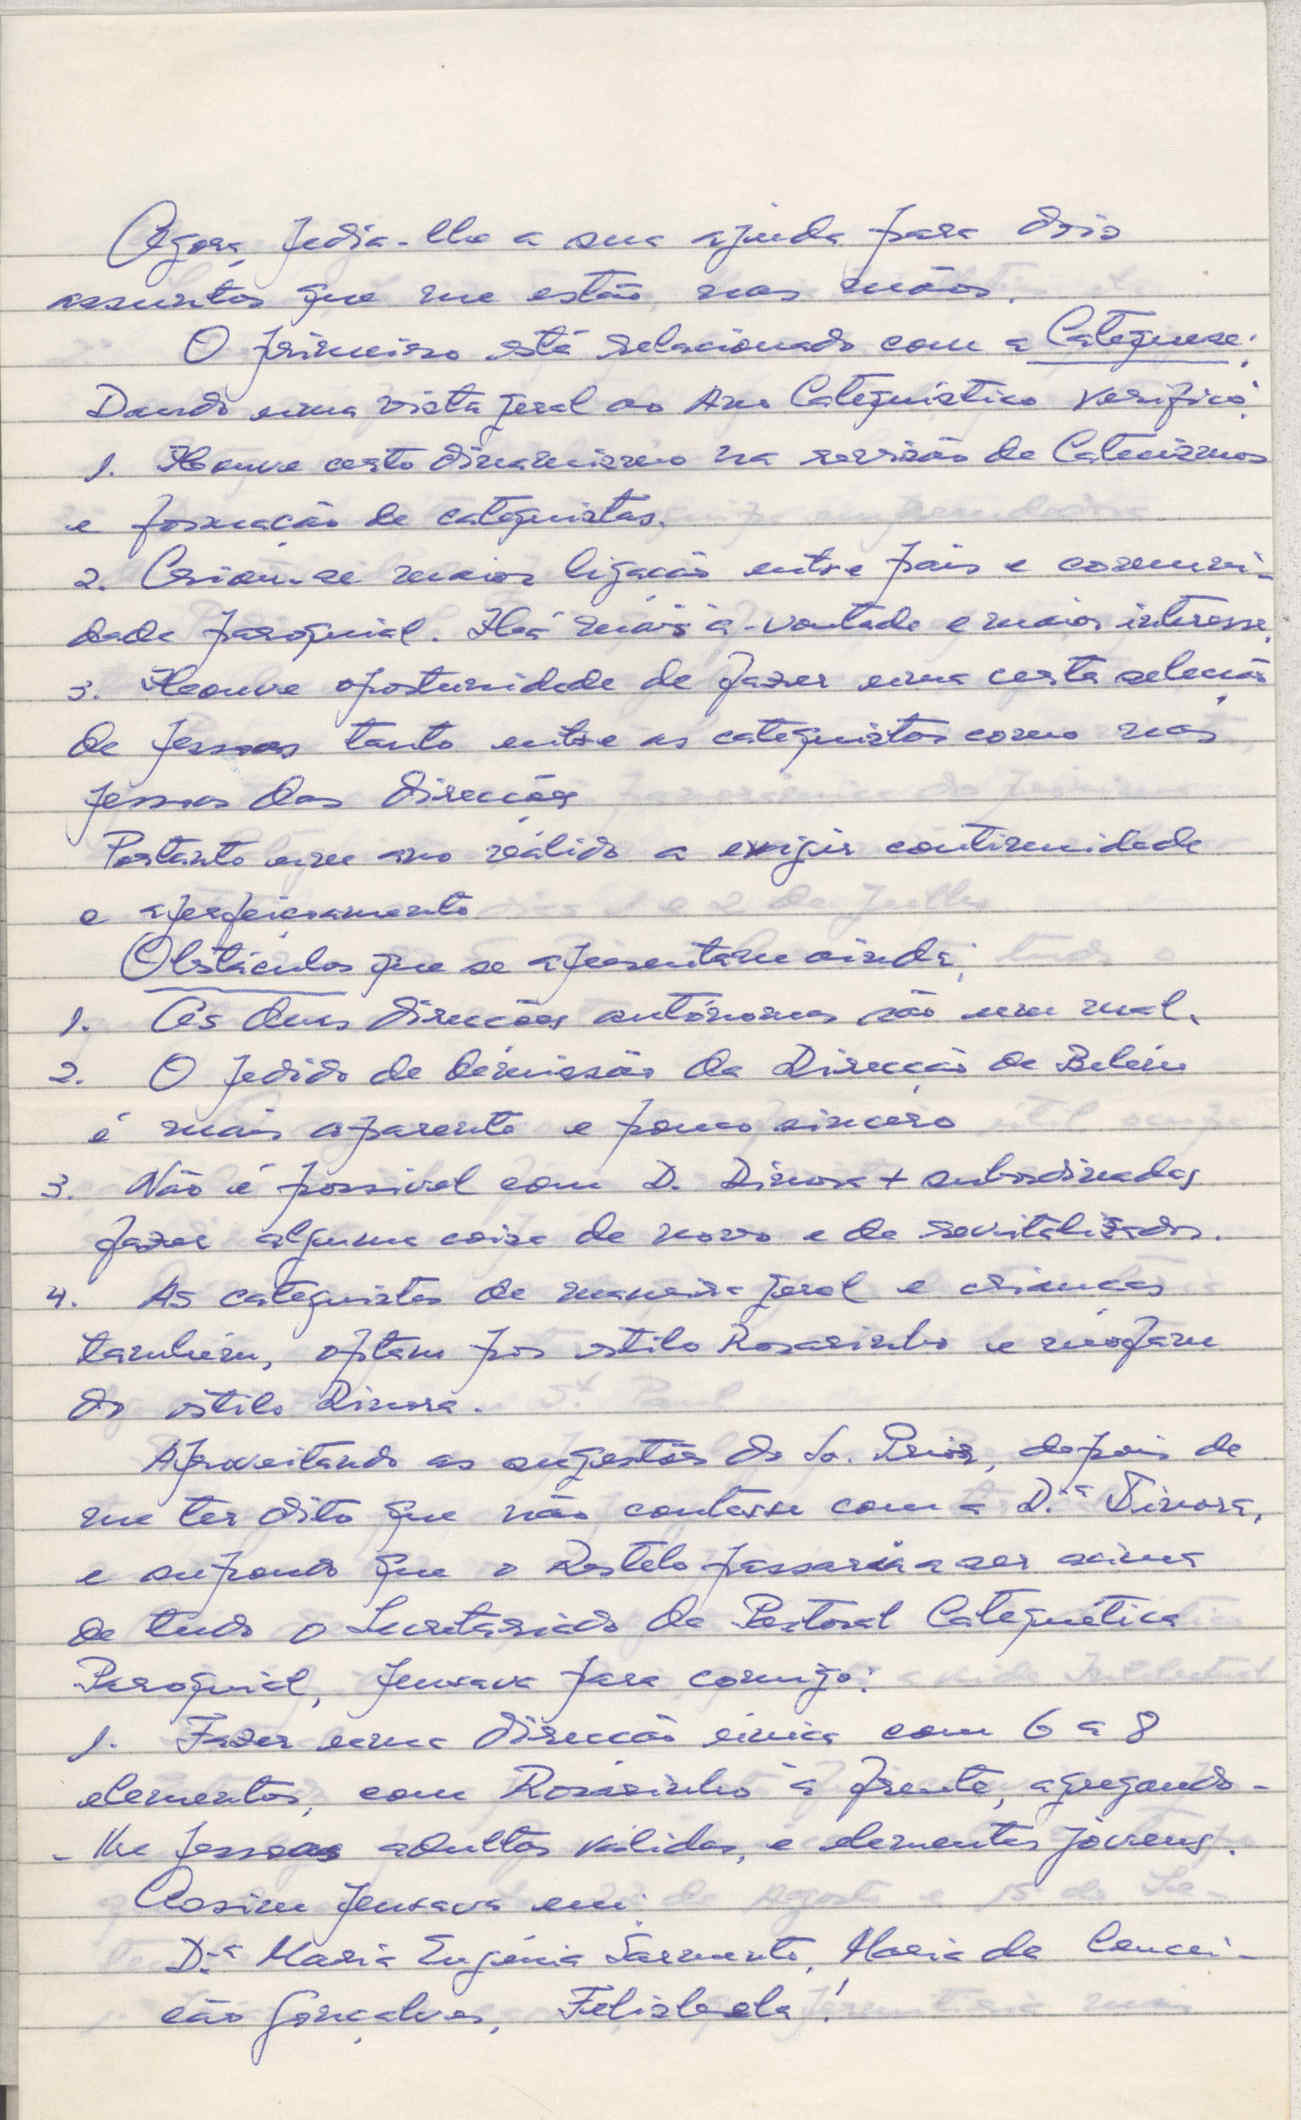 Agora, pedia-lhe a sua ajuda para dois
assuntos que me estão nas mãos.
O primeiro está relacionado com a Catequese:
Dando uma vista geral ao Ano Catequístico verifico:
1. Houve certo dinamismo na revisão de Catecismos
e formação de catequistas.
2. Criou-se maior ligação entre pais e comuni-
dade paroquial. Há mais à-vontade e maior interesse.
3. Houve oportunidade de fazer uma certa selecção
de pessoas tanto entre as catequistas como nas
pessoas das direcções
Portanto um ano válido a exigir continuidade
e aperfeiçoamento
Obstáculos que se apresentam ainda:
1. As duas direcções autónomas são um mal.
2. O pedido de demissão da Direcção de Belém
é mais aparente e pouco sincero
3. Não é possível com D. Dinora + subordinadas
fazer alguma coisa de novo e de revitalizador.
4. As catequistas de maneira geral e crianças
também, optam por estilo Rosarinho e
do estilo Dinora.
Aproveitando as sugestões do Sr. Prior, depois de
me ter dito que não contasse com a D.ª Dinora,
e supondo que o Restelo passaria a ser acima
de tudo o Secretariado da Pastoral Catequética
Paroquial, pensava para comigo:
1. Fazer uma direcção única com 6 a 8
elementos, com Rosarinho à frente, agregando-
-lhe pessoas adultas válidas, e elementos jovens.
Assim pensava em:
D.ª Maria Eugénia Sarmento, Maria da Concei-
ção Gonçalves, Felisbela!